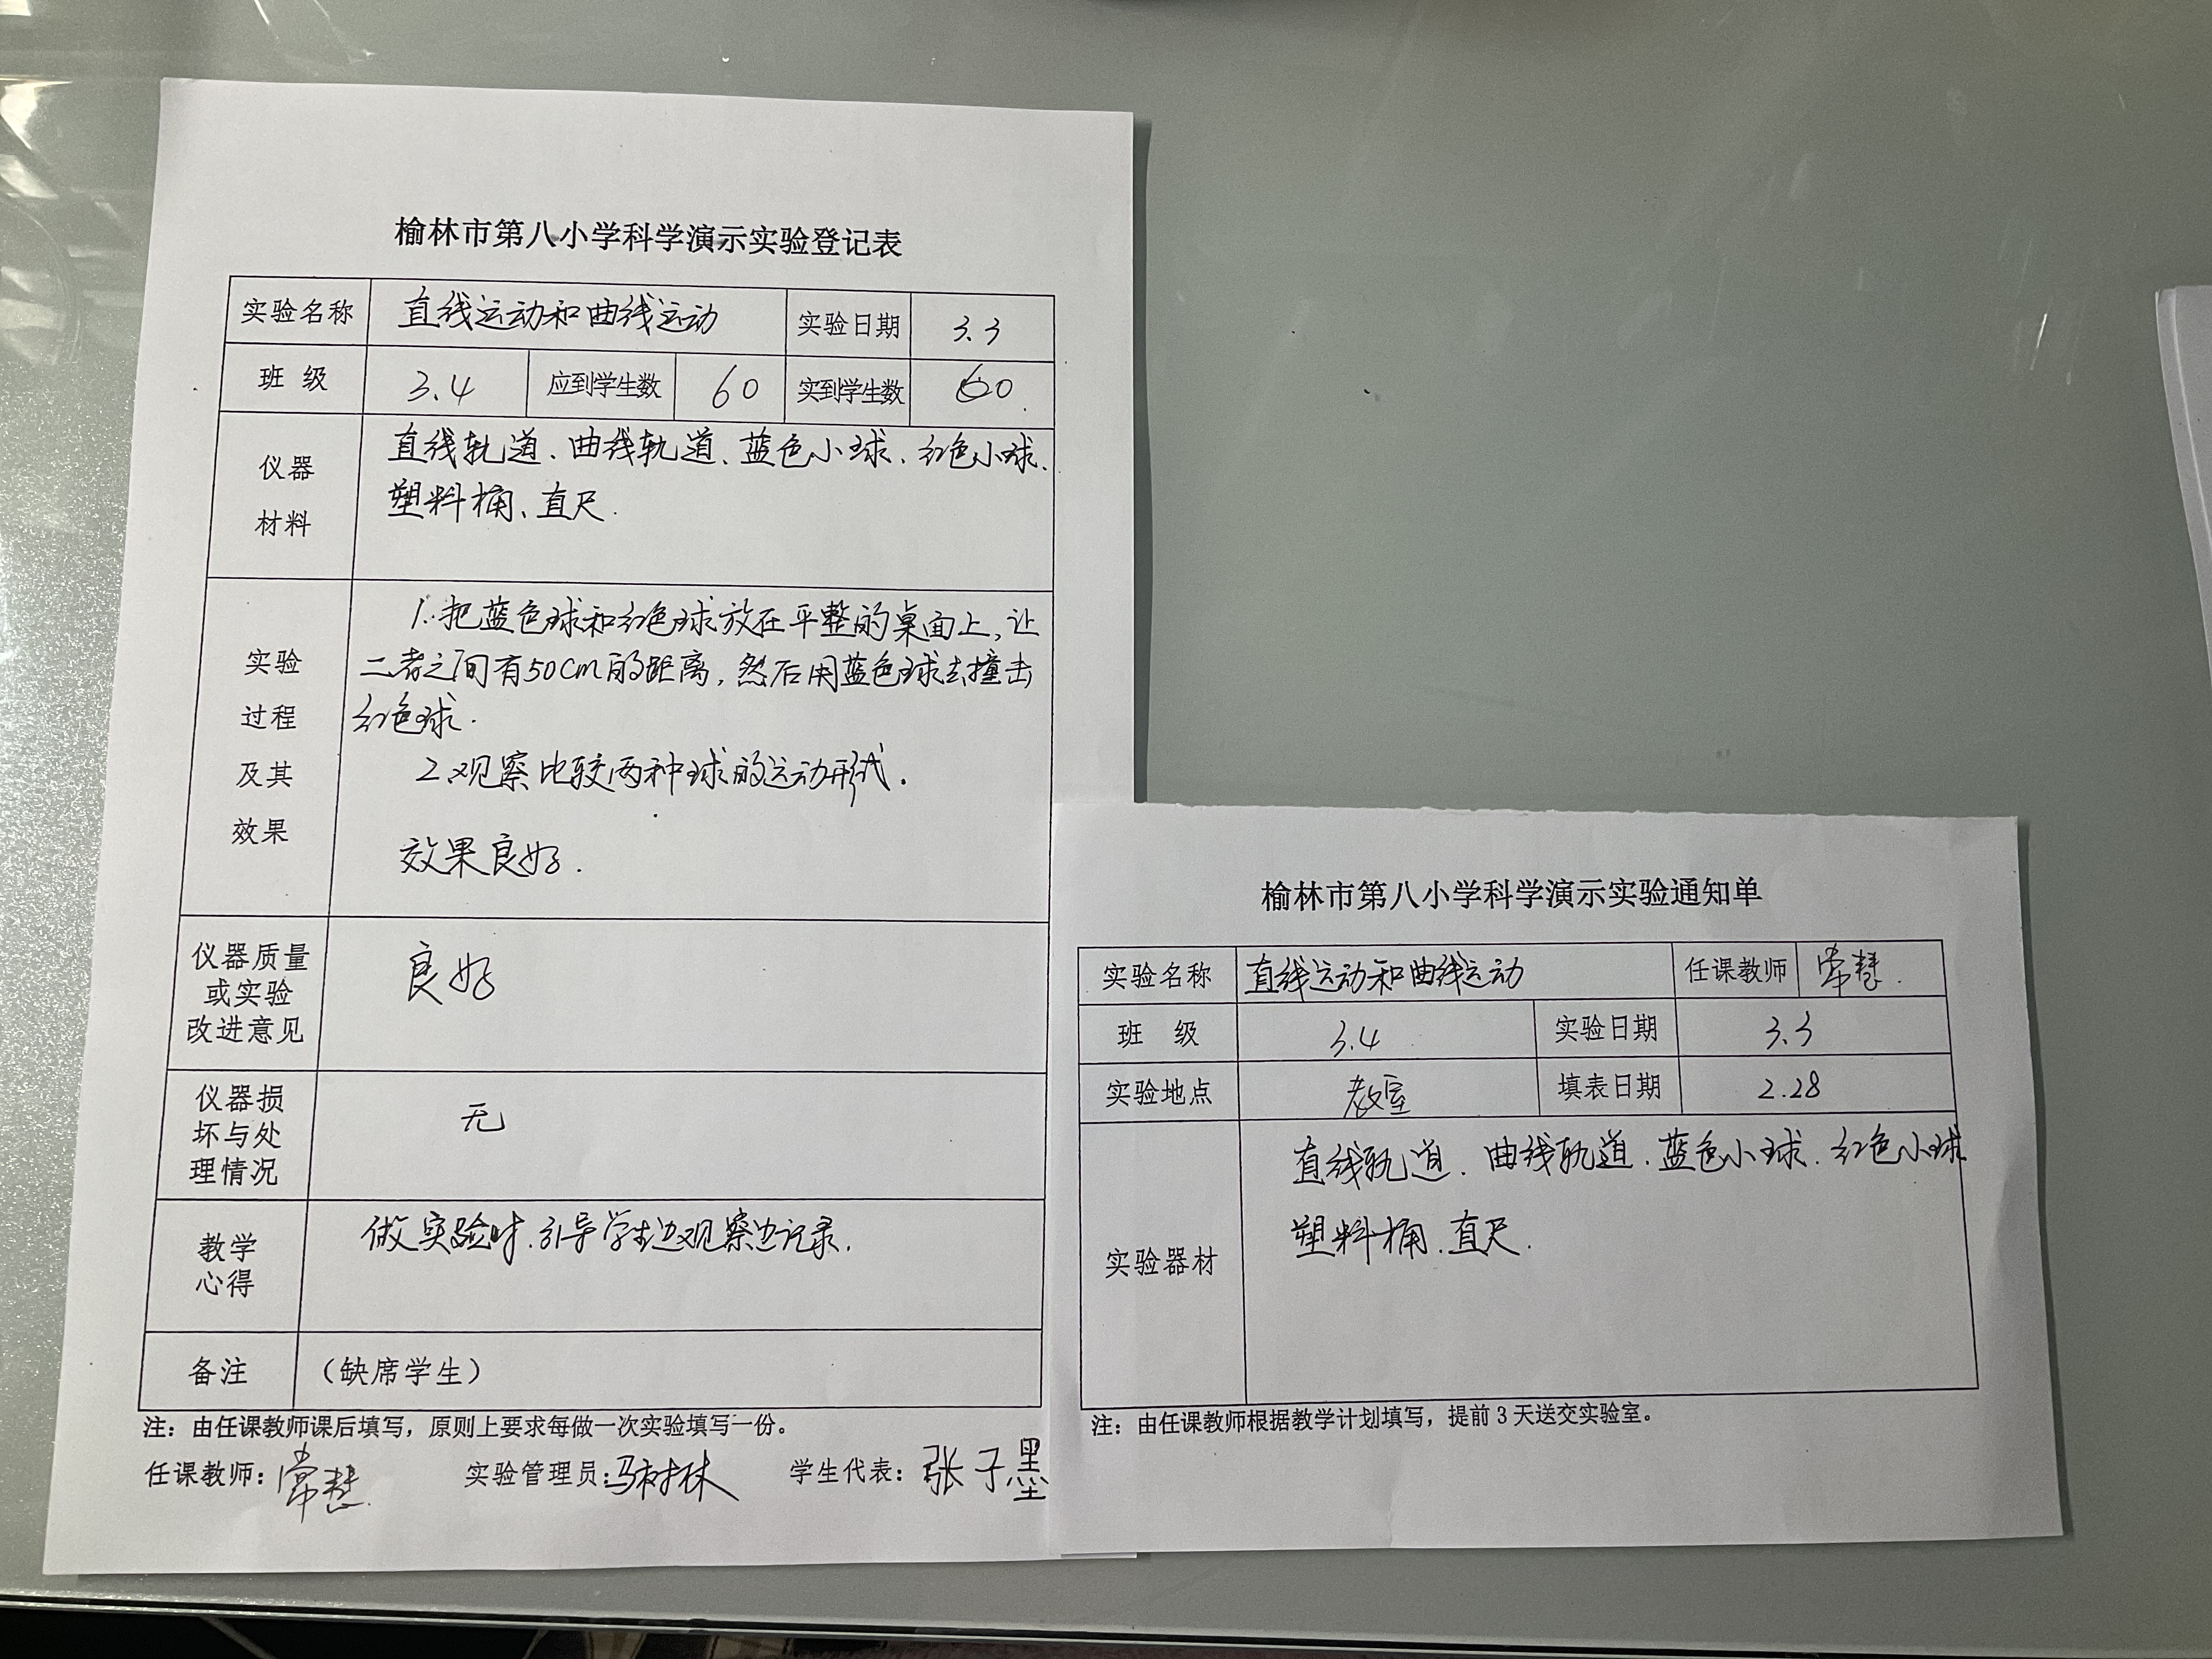 榆林市第八小学科学演示实验登记表
实验名称 直线运动和曲线运动 实验日期 3.3
班 级 3.4 应到学生数 60 实到学生数 60
仪器
材料
直线轨道、曲线轨道、蓝色小球、红色小球、
塑料桶、直尺.
实验
过程
及其
效果
1. 把蓝色球和红色球放在平整的桌面上,让
二者之间有50cm的距离,然后用蓝色球去撞击
红色球.
2.观察比较两种球的运动形式.
效果良好.
仪器质量
或实验
改进意见
良好
仪器损
坏与处
理情况
无
教学
心得
做实验时.引导学生边观察边记录.
备注 (缺席学生)
注:由任课教师课后填写,原则上要求每做一次实验填写一份。
任课教师:常慧. 实验管理员:马树林 学生代表:张子墨
榆林市第八小学科学演示实验通知单
实验名称 直线运动和曲线运动 任课教师 常慧.
班 级 3.4 实验日期 3.3
实验地点 教室 填表日期 2.28
实验器材
直线轨道、曲线轨道、蓝色小球、红色小球
塑料桶、直尺.
注:由任课教师根据教学计划填写,提前3天送交实验室。